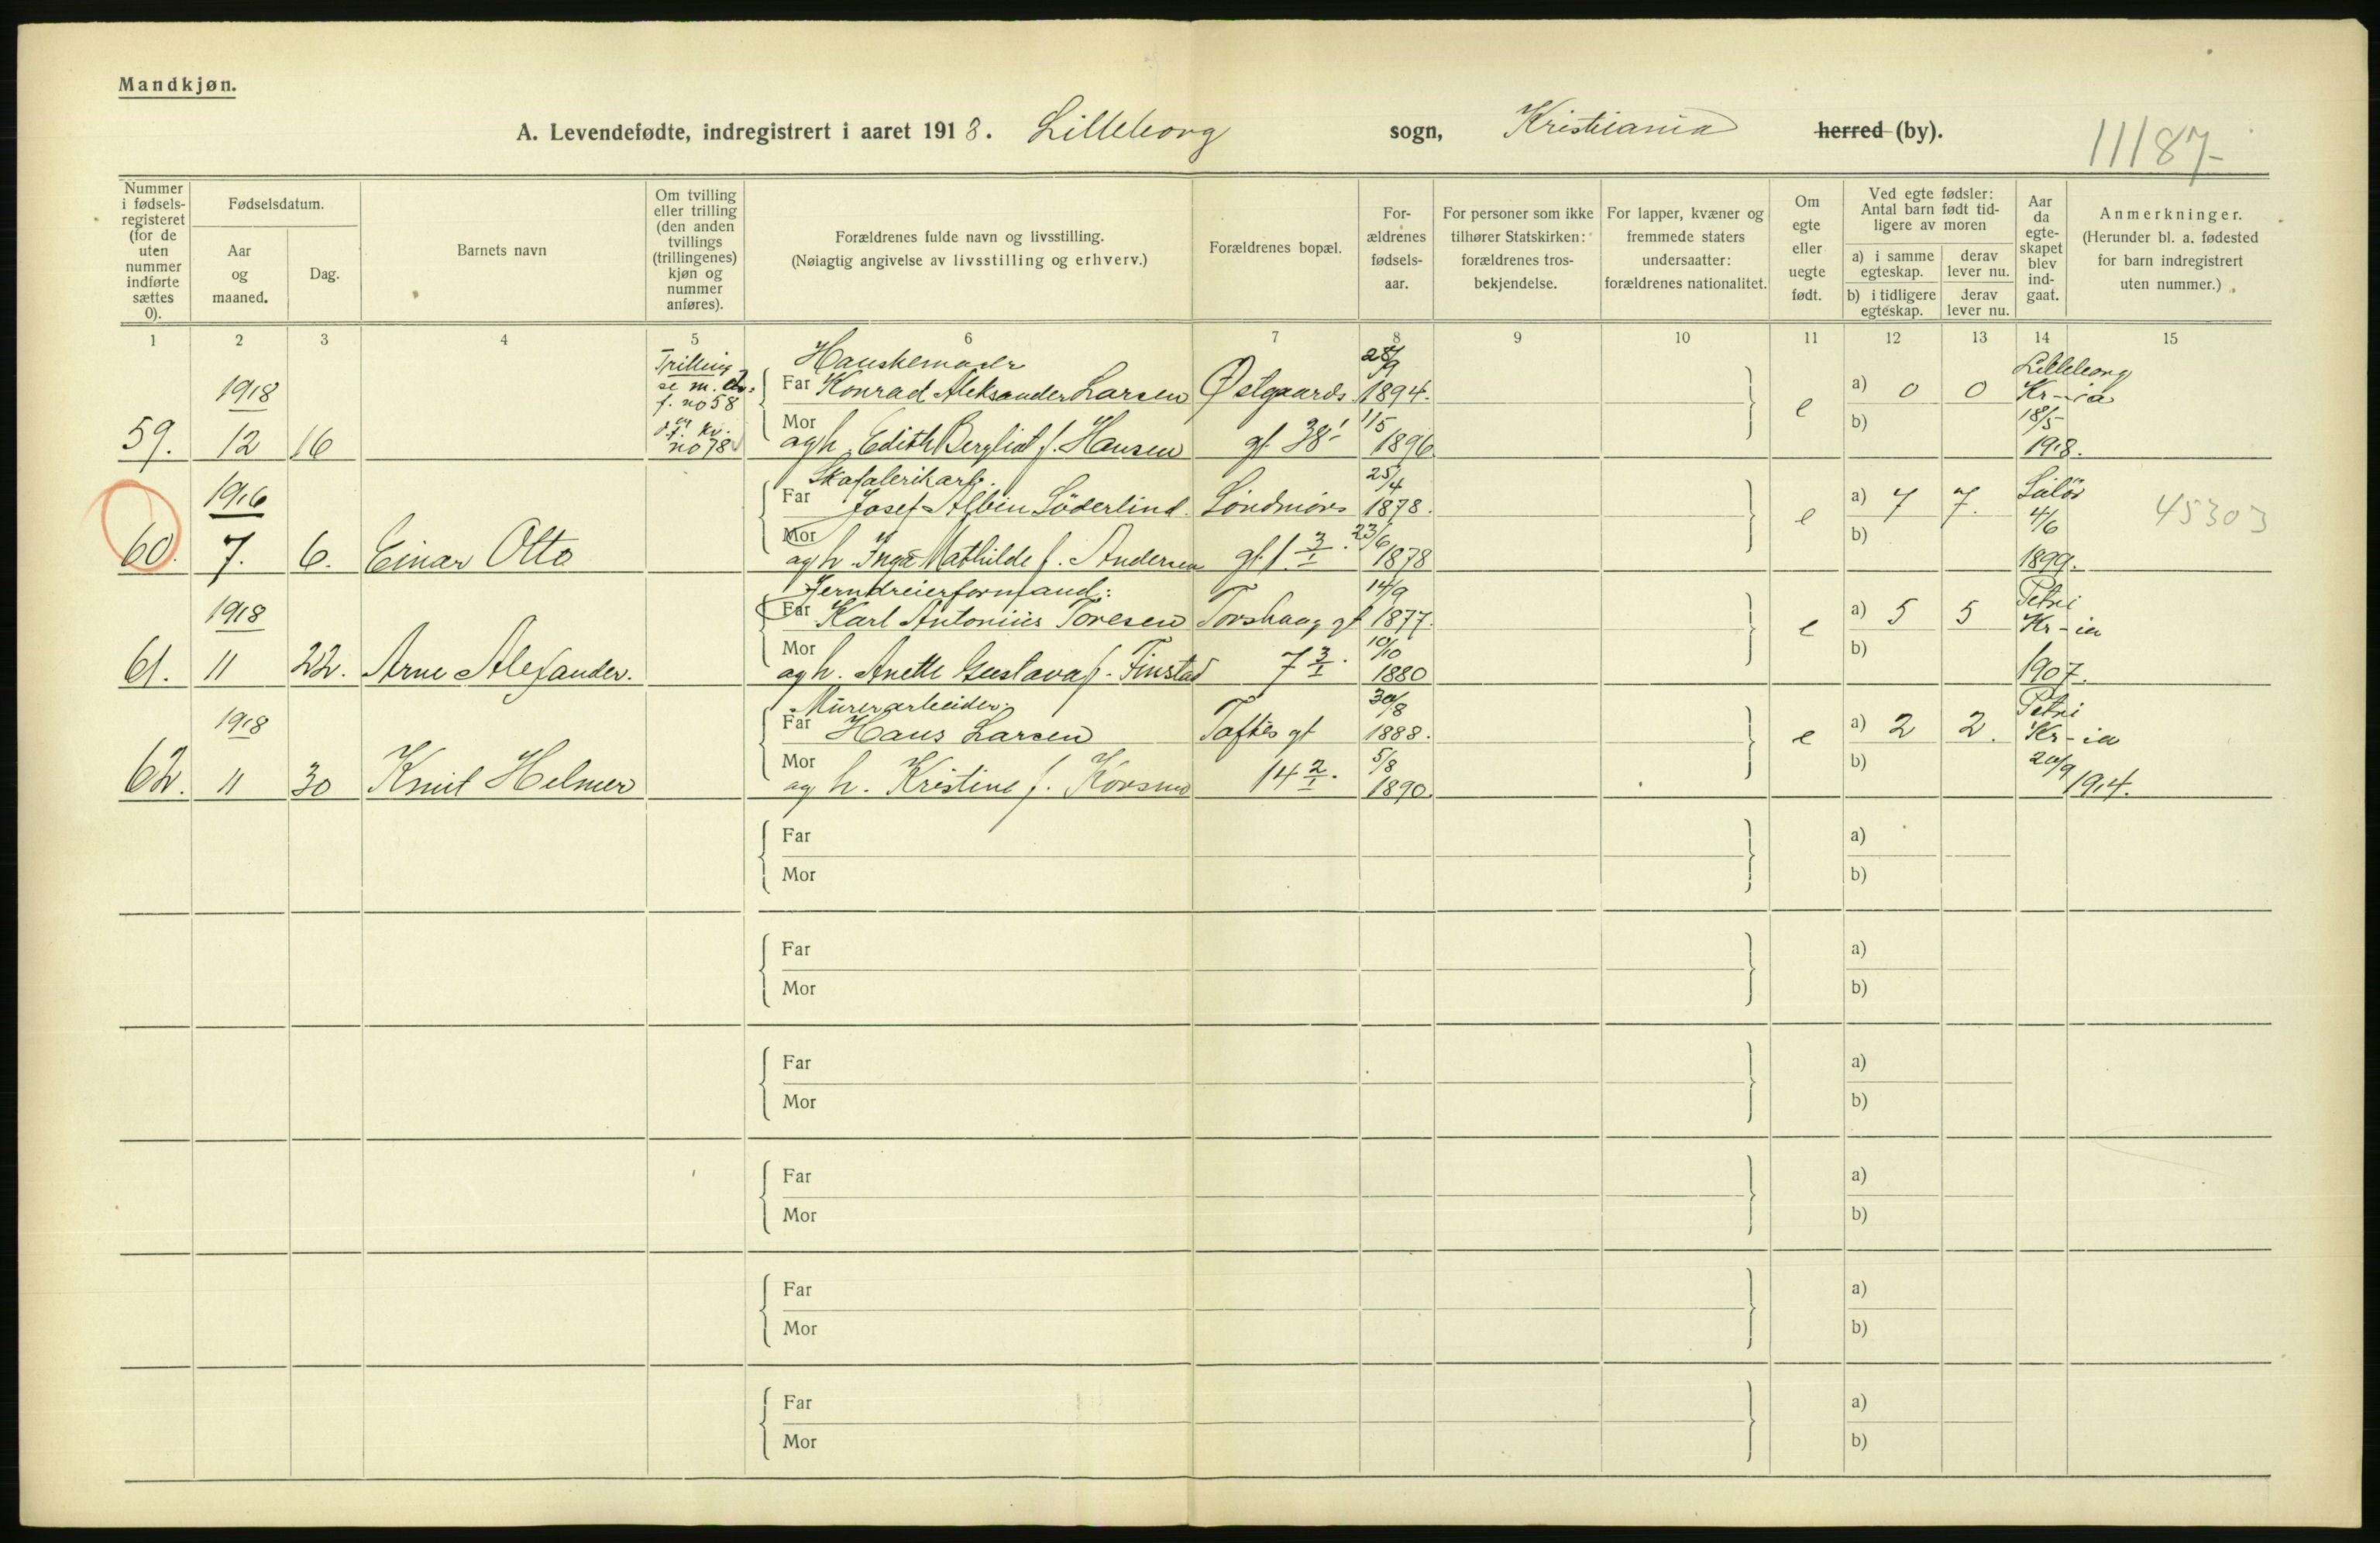 Mandkjøn.
A. Levendefødte, indregistrert i aaret 1918. Lilleborg sogn, Kristiania herred (by).
11187-
Nummer i fødsels-registeret (for de uten nummer indførte sættes 0).
Fødselsdatum.
Aar og maaned.
Dag.
Barnets navn
Om tvilling eller trilling (den anden tvillings (trillingenes) kjøn og nummer anføres).
Forældrenes fulde navn og livsstilling.
(Nøiagtig angivelse av livsstilling og erhverv.)
Forældrenes bopæl.
For-ældrenes fødsels-aar.
For personer som ikke tilhører Statskirken: forældrenes tros-bekjendelse.
For lapper, kvæner og fremmede staters undersaatter: forældrenes nationalitet.
Om egte eller uegte født.
Ved egte fødsler: Antal barn født tid-ligere av moren
a) i samme egteskap.
derav lever nu.
b) i tidligere egteskap.
derav lever nu.
Aar da egte-skapet blev ind-gaat.
Anmerkninger.
(Herunder bl. a. fødested for barn indregistrert uten nummer.)
1 2 3 4 5 6 7 8 9 10 11 12 13 14 15
Trilling se m. f. no 58 kv. no 78
Hanskemager 28/9 Lilleborg
1918 Far Konrad Aleksander Larsen Østgaards 1894. e a) 0 0 Kr-ia
59. 12 16 Mor og h. Edith Bergliot f. Hansen gt 38 1/5 1896 b) 18/5 1918.
Skofabrikarb. 25/4
1916 Far Josef Albin Söderlind Söndmörs 1878. e a) 7 7. 4/6 45303
60. 7. 6. Einar Otto Mor og h. Inga Mathilde f. Andersen gt. 1 3/I. 23/6 1878 b) 1899.
Jerndreierformand: 14/9 Petri
1918 Far Karl Antonius Toresen Torshaug gt 1877. e a) 5 5 Kr-ia
61. 11 22. Arne Alexander. Mor og h. Anette Gustava f. Finstad 7 3/I. 10/10 1880 b) 1907.
Murerarbeider. 30/8 Petri
1918 Far Hans Larsen Toftes gt 1888. e a) 2 2. Kr-ia
62. 11 30 Knut Helmer Mor og h. Kristine f. Korsmo 14 2/I. 5/8 1890. b) 20/9 1914.
Far a)
Mor b)
Far a)
Mor b)
Far a)
Mor b)
Far a)
Mor b)
Far a)
Mor b)
Far a)
Mor b)